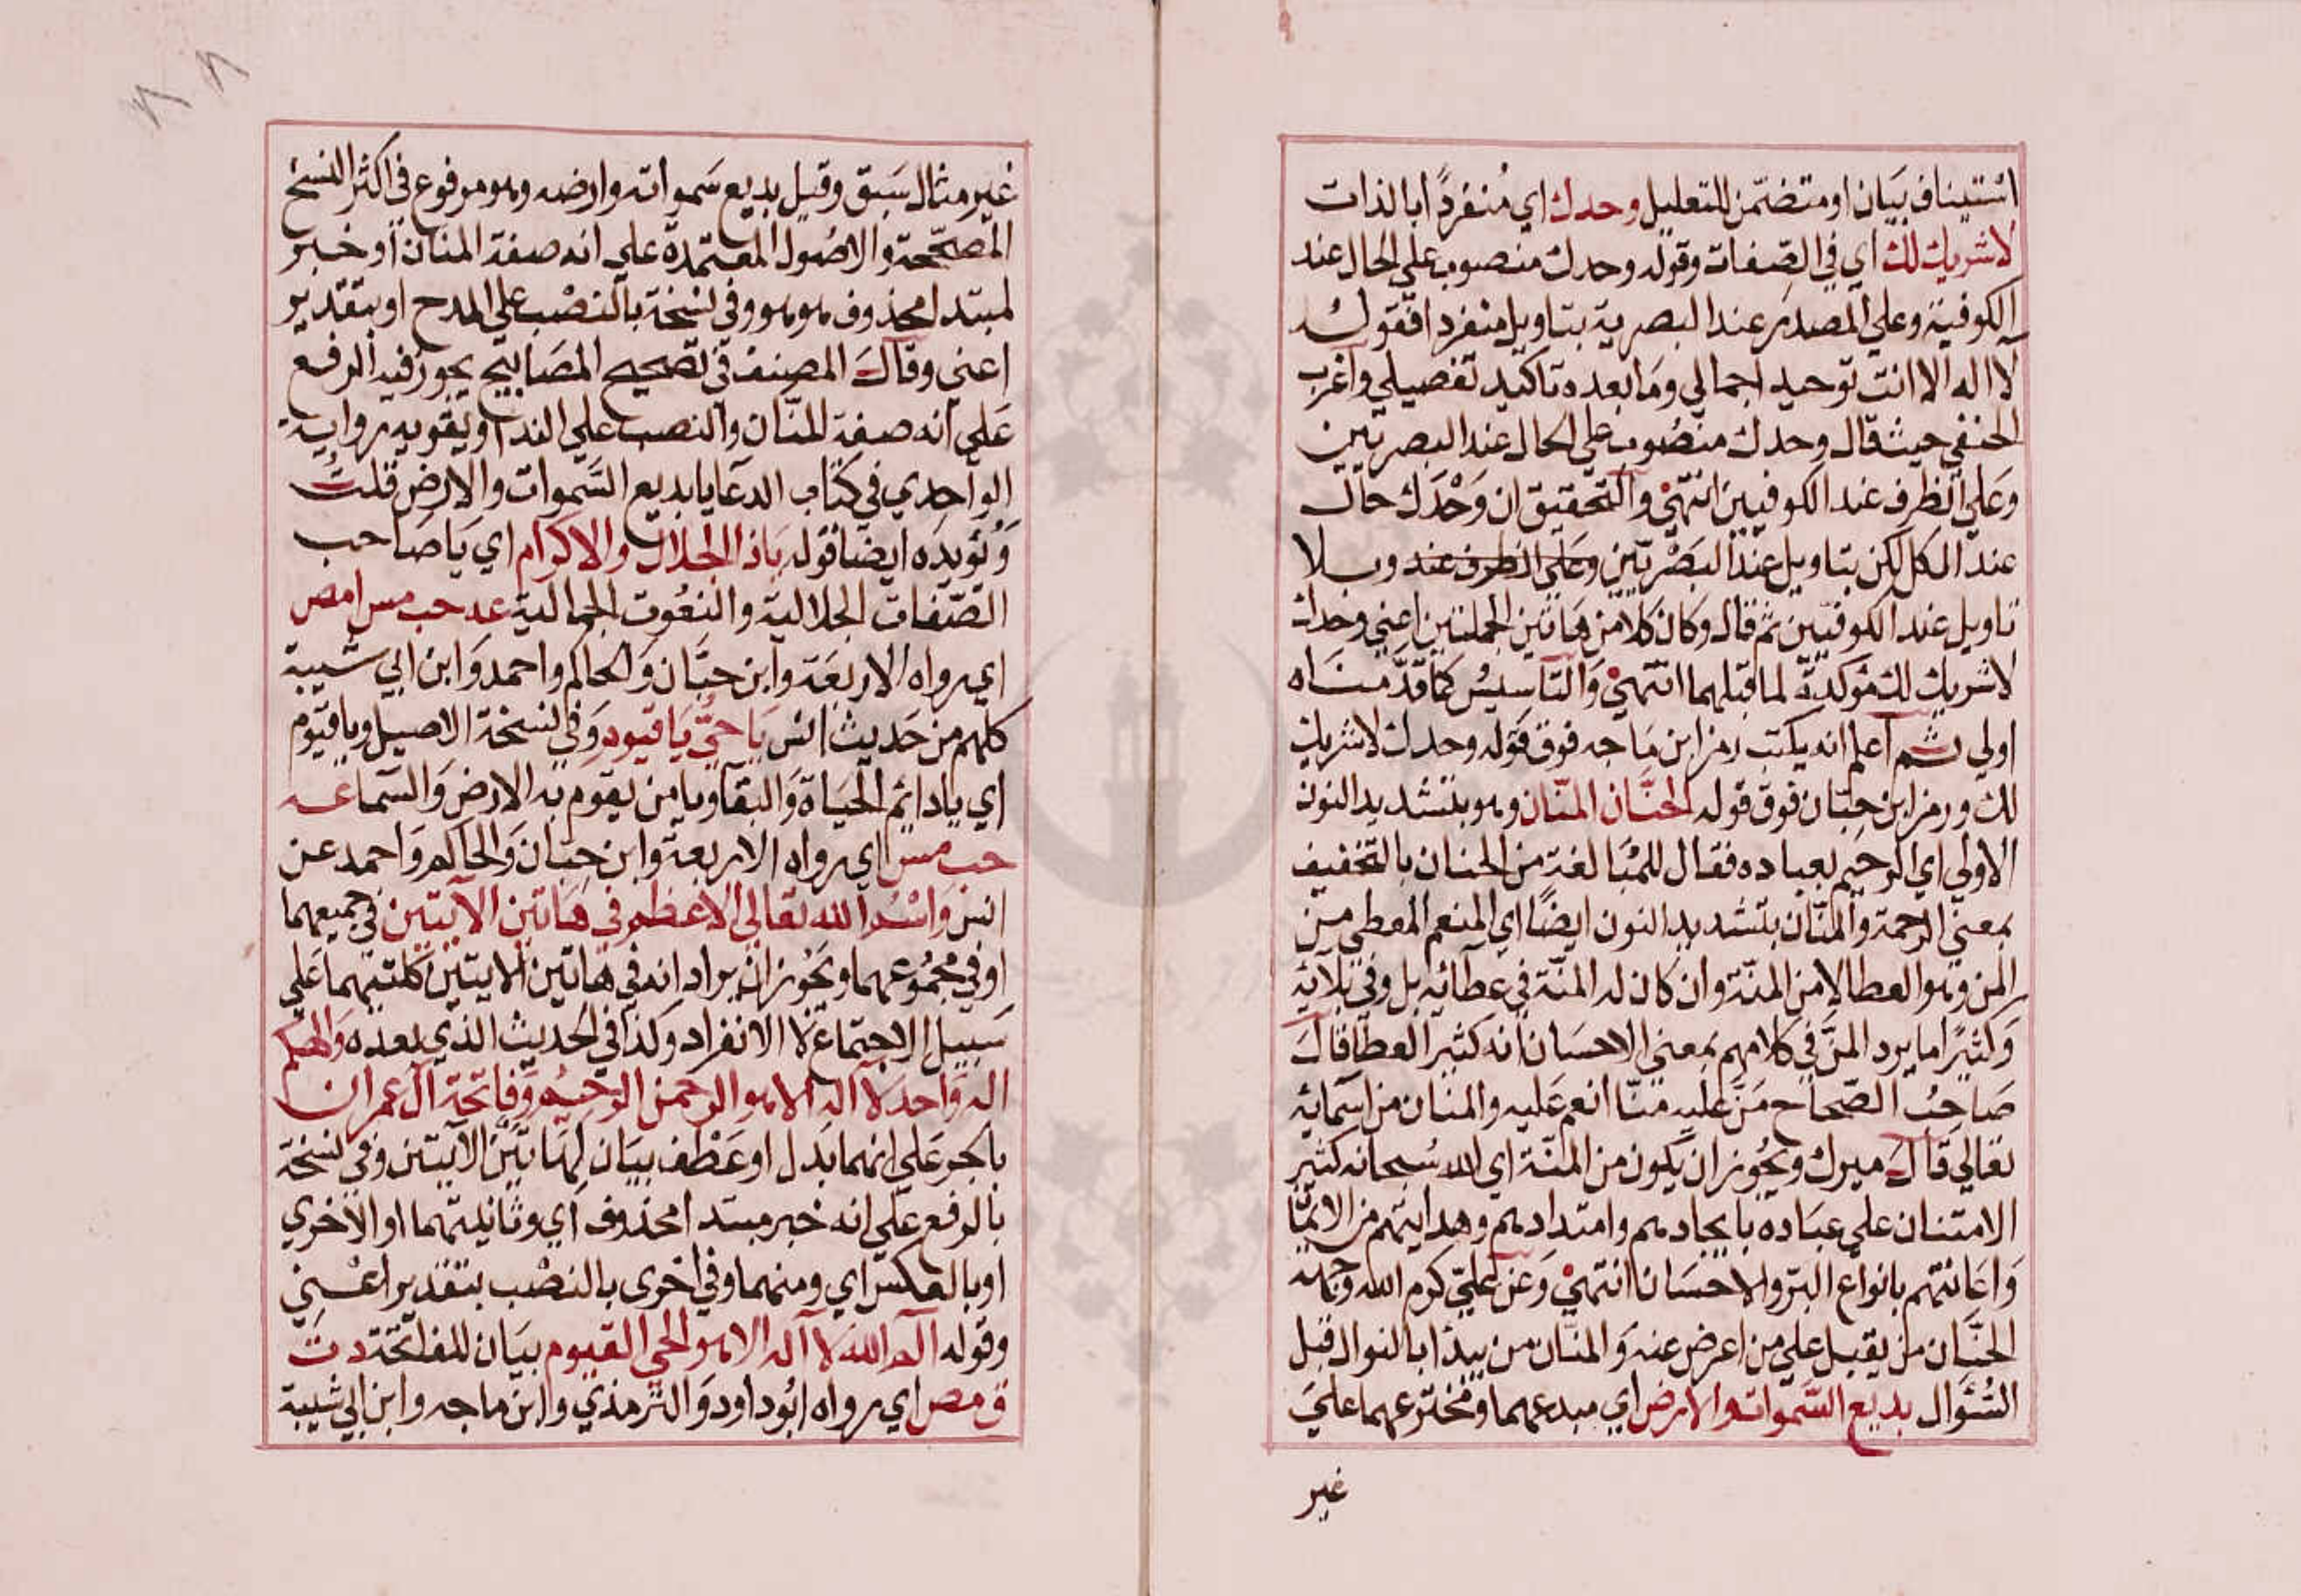 استيناف بيان او متضمن للتعليل وحدك اي منفردًا بالذات
لا شريك لك اي في الصفات وقوله وحدك منصوب علي الحال عند
الكوفية وعلي المصدر عند البصرية بتاويل منفردا فقولك
لا اله الا انت توحيد اجمالي وما بعده تاكيد تفصيلي واغرب
الحنفي حيث قال وحدك منصوب علي الحال عند البصريين
وعلي الظرف عند الكوفيين انتهي والتحقيق ان وحدك حال
عند الكل لكن بتاويل عند البصريين وعلي الظرف عند وبلا
تاويل عند الكوفيين ثم قال وكان كلا من هاتين الجملتين اعني وحدك
لا شريك لك مؤكدة لما قبلهما انتهي والتاسيس كما قدمناه
اولي ثم اعلم انه يكتب رمز ابن ماجه فوق قوله وحدك لا شريك
لك ورمز ابن حبان فوق قوله الحنان المنان وهو بتشديد النون
الاولي اي الرحيم بعباده فعال للمبالغة من الحنان بالتخفيف
بمعني الرحمة والمنان بتشديد النون ايضًا اي المنعم المعطي من
المن وهو العطا لا من المنة وان كان له المنة في عطائه بل وفي بلائه
وكثيرًا ما يرد المن في كلامهم بمعني الاحسان انه كثير العطا قال
صاحب الصحاح من عليه منا انعم عليه والمنان من اسمائه
تعالي قال ميرك ويجوز ان يكون من المنة اي الله سبحانه كثير
الامتنان علي عباده بايجادهم وامتدادهم وهدايتهم من الايمان
واعانتهم بانواع البر والاحسان انتهي وعن علي كرم الله وجهه
الحنان من يقبل علي من اعرض عنه والمنان من يبدأ بالنوال قبل
السؤال بديع السموات والارض اي مبدعهما ومخترعهما علي
غير
غير مثال سبق وقيل بديع سمواته وارضه وهو مرفوع في اكثر النسخ
المصححة والاصول المعتمدة علي انه صفة المنان او خبر
لمبتدا محذوف هو هو وفي نسخة بالنصب علي المدح او بتقدير
اعني وقال المصنف في تصحيح المصابيح يجوز فيه الرفع
علي انه صفة المنان والنصب علي الندا ويقويه رواية
الواحدي في كتاب الدعا يا بديع السموات والارض قلت
ويؤيده ايضا قوله يا ذا الجلال والاكرام اي يا صاحب
الصفات الجلالية والنعوت الجمالية عه حب مس ا مص
اي رواه الاربعة وابن حبان والحاكم واحمد وابن ابي شيبة
كلهم من حديث انس يا حي يا قيوم وفي نسخة الاصيل ويا قيوم
اي يا دائم الحياة والبقا ويا من يقوم به الارض والسما عه
حب مس اي رواه الاربعة وابن حبان والحاكم واحمد عن
انس واسم الله تعالي الاعظم في هاتين الآيتين في جميعهما
او في مجموعهما ويجوز ان يراد انه في هاتين الايتين كلتيهما علي
سبيل الاجتماع لا الانفراد وكذا في الحديث الذي بعده والهكم
اله واحد لا اله الا هو الرحمن الرحيم وفاتحة آل عمران
بالجر علي انهما بدل او عطف بيان لهاتين الآيتين وفي نسخة
بالرفع علي انه خبر مبتدا محذوف اي وثانيتهما او الاخري
او بالعكس اي ومنهما وفي اخرى بالنصب بتقدير اعني
وقوله الم الله لا اله الا هو الحي القيوم بيان للفاتحة د ت
ق مص اي رواه ابو داود والترمذي وابن ماجه وابن ابي شيبة